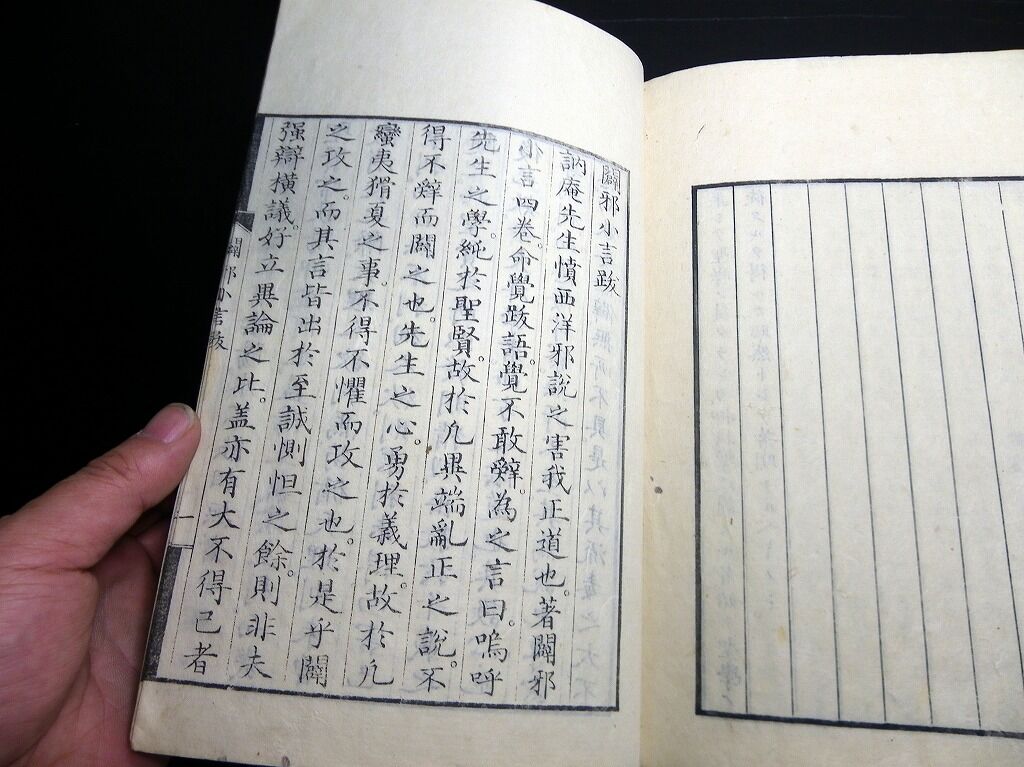 闢邪小言跋
訥庵先生憤西洋邪說之害我正道也。著闢邪
小言四卷。命覺跋語。覺不敢辭。為之言曰。嗚呼
先生之學。純於聖賢。故於凡異端亂正之說。不
得不辭而闢之也。先生之心。勇於義理。故於凡
蠻夷猾夏之事。不得不懼而攻之也。於是乎闢
之攻之。而其言皆出於至誠惻怛之餘。則非夫
强辯橫議。好立異論之比。盖亦有大不得已者
闢邪小言跋